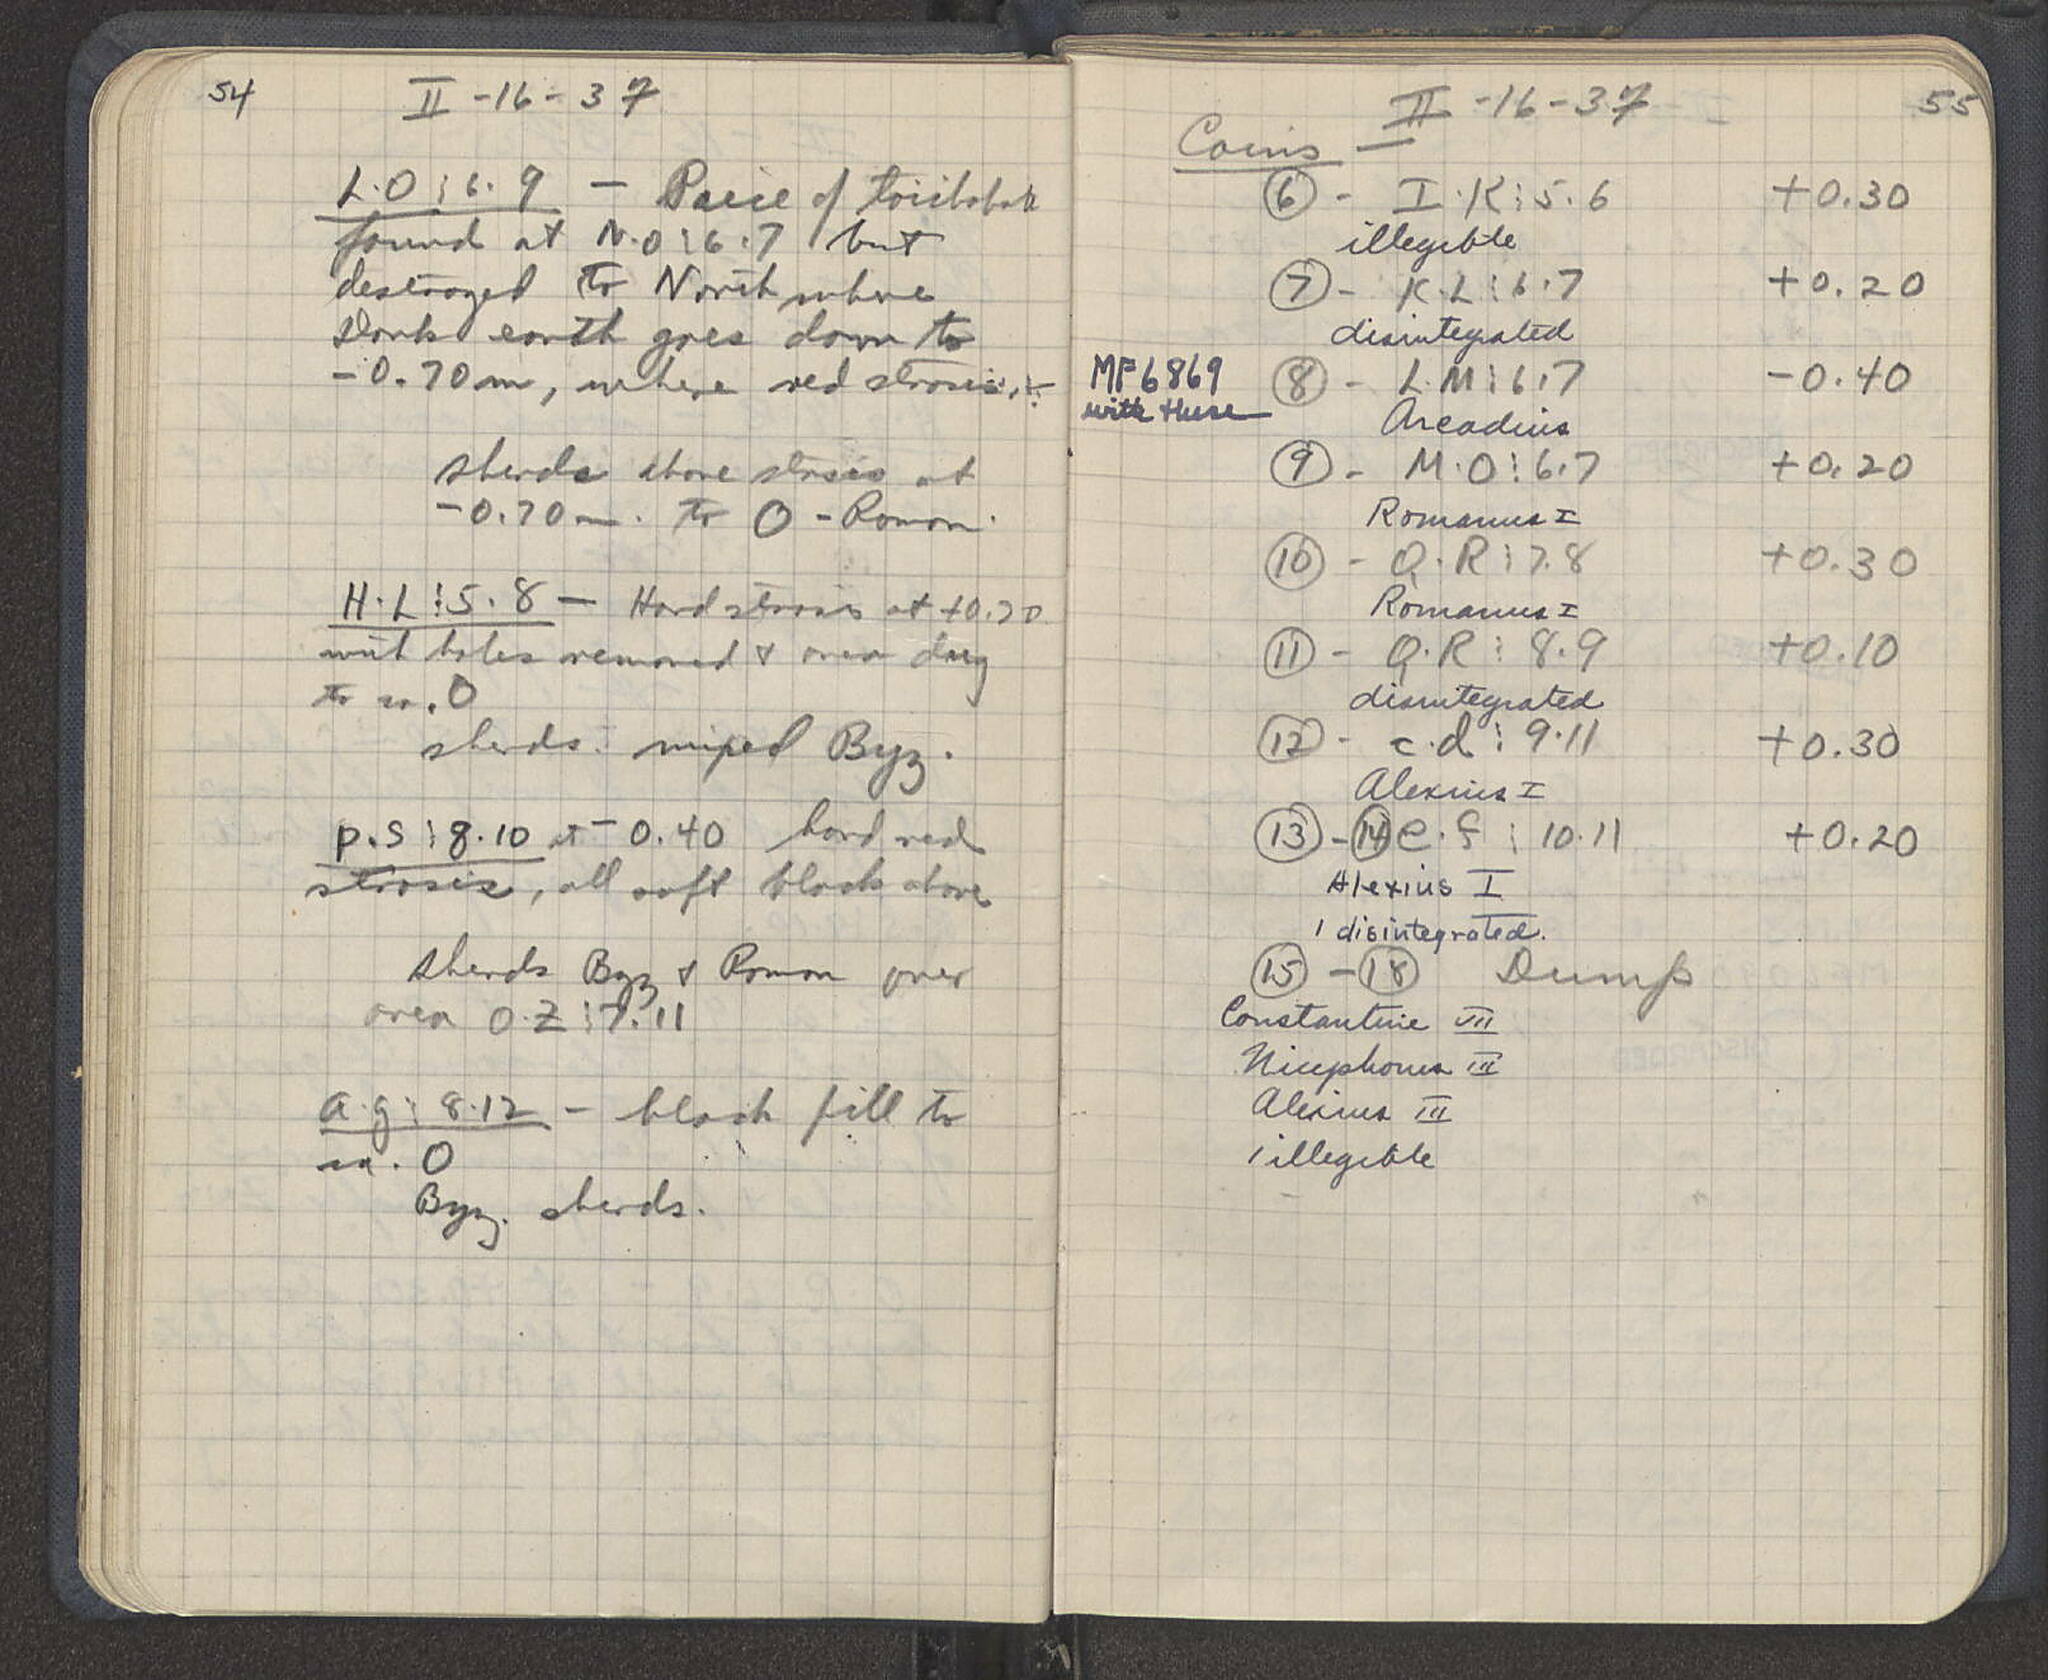 54
II -16-37
L.O⋮6.9 — Peice of
found at N.O⋮6.7 but
destroyed to North where
dark earth goes down to
-0.70m, where red strosis
sherds above strosis at
-0.70m. to O - Roman.
H.L⋮5.8 — Hard strosis at +0.20
with holes removed & area dug
to ca. O
sherds: mixed Byz.
P.S⋮8.10 at -0.40 hard red
strosis, all soft black above
sherds Byz & Roman over
area O.Z⋮7.11
a.g⋮8.12 — black fill to
ca. O
Byz. sherds.
II -16-37
55
Coins —
6 - I.K⋮5.6 +0.30
illegible
7 - K.L⋮6.7 +0.20
disintegrated
MF6869 8 - L.M⋮6.7 -0.40
with these Arcadius
9 - M.O⋮6.7 +0.20
Romanus I
10 - Q.R⋮7.8 +0.30
Romanus I
11 - Q.R⋮8.9 +0.10
disintegrated
12 - c.d⋮9.11 +0.30
Alexius I
13 - 14 e.f⋮10.11 +0.20
Alexius I
1 disintegrated.
15 - 18 Dump
Constantine VII
Nicephorus III
Alexius III
1 illegible